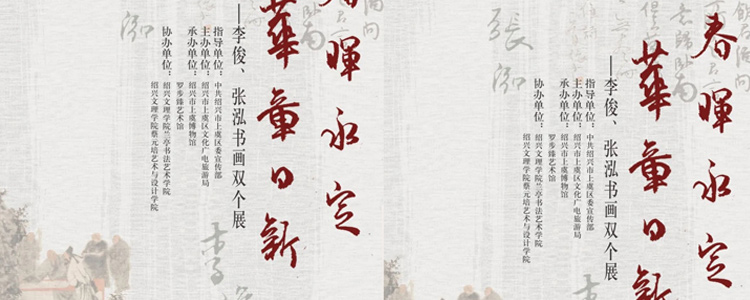 春暉永定
華章日新
——李俊、张泓书画双个展
指导单位：中共绍兴市上虞区委宣传部
主办单位：绍兴市上虞区文化广电旅游局
承办单位：绍兴市上虞博物馆
协办单位：
罗步臻艺术馆
绍兴文理学院兰亭书法艺术学院
绍兴文理学院蔡元培艺术与设计学院
泓
李
春暉永定
華章日新
——李俊、张泓书画双个展
指导单位：中共绍兴市上虞区委宣传部
主办单位：绍兴市上虞区文化广电旅游局
承办单位：绍兴市上虞博物馆
协办单位：
罗步臻艺术馆
绍兴文理学院兰亭书法艺术学院
绍兴文理学院蔡元培艺术与设计学院
張泓
李